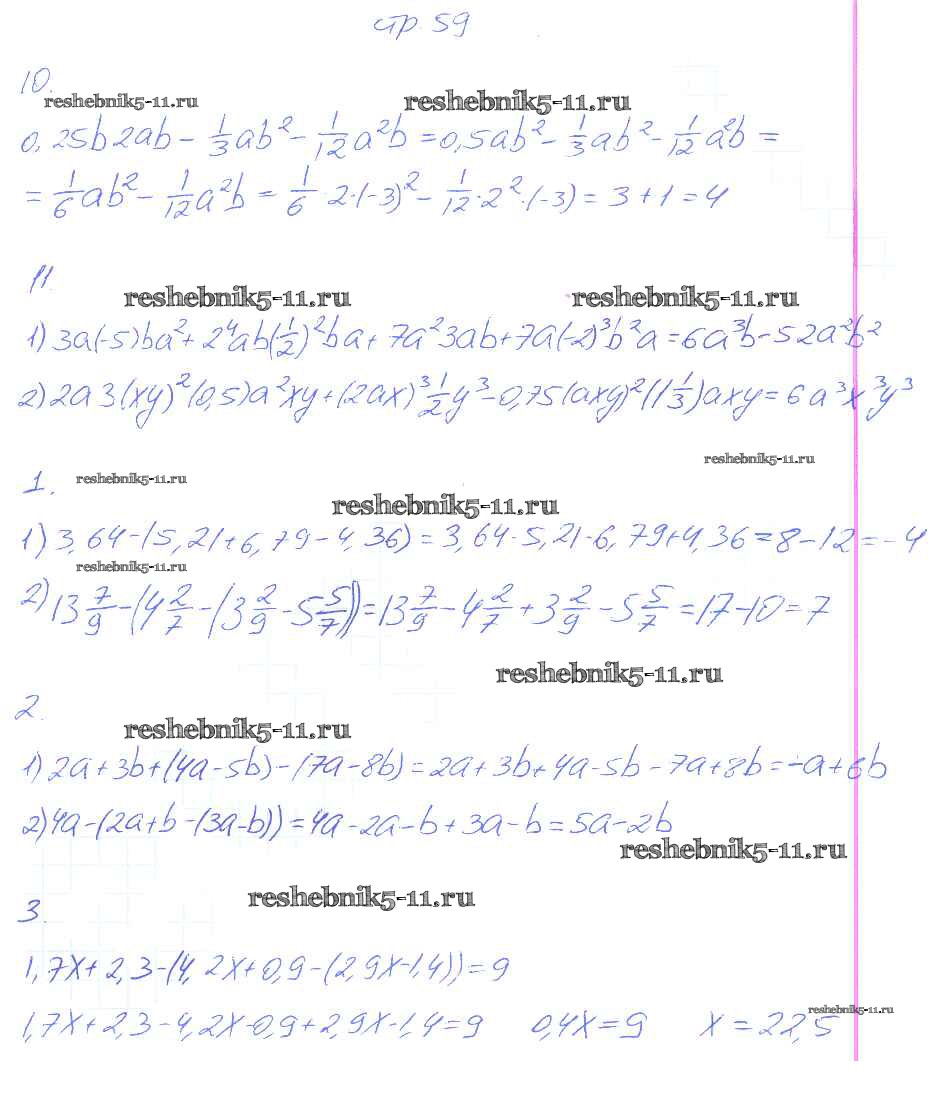 стр. 59
10.
reshebnik5-11.ru reshebnik5-11.ru
0,25b2ab - 1/3 ab² - 1/12 a²b = 0,5ab² - 1/3 ab² - 1/12 a²b =
= 1/6 ab² - 1/12 a²b = 1/6 · 2·(-3)² - 1/12 · 2² · (-3) = 3 + 1 = 4
11.
reshebnik5-11.ru reshebnik5-11.ru
1) 3a(-5)ba² + 2⁴ab(1/2)²ba + 7a²3ab + 7a(-2)³b²a = 6a³b - 52a²b²
2) 2a3(xy)²(0,5)a²xy + (2ax)³ 1/2 y³ - 0,75(axy)²(1 1/3)axy = 6a³x³y³
reshebnik5-11.ru
1. reshebnik5-11.ru
reshebnik5-11.ru
1) 3,64-(5,21+6,79-4,36) = 3,64-5,21-6,79+4,36 = 8-12 = -4
reshebnik5-11.ru
2) 13 7/9 - (4 2/7 - (3 2/9 - 5 5/7)) = 13 7/9 - 4 2/7 + 3 2/9 - 5 5/7 = 17-10 = 7
reshebnik5-11.ru
2.
reshebnik5-11.ru
1) 2a+3b+(4a-5b)-(7a-8b) = 2a+3b+4a-5b-7a+8b = -a+6b
2) 4a-(2a+b-(3a-b)) = 4a-2a-b+3a-b = 5a-2b
reshebnik5-11.ru
reshebnik5-11.ru
3.
1,7x+2,3-(4,2x+0,9-(2,9x-1,4)) = 9
reshebnik5-11.ru
1,7x+2,3-4,2x-0,9+2,9x-1,4 = 9 0,4x = 9 x = 22,5